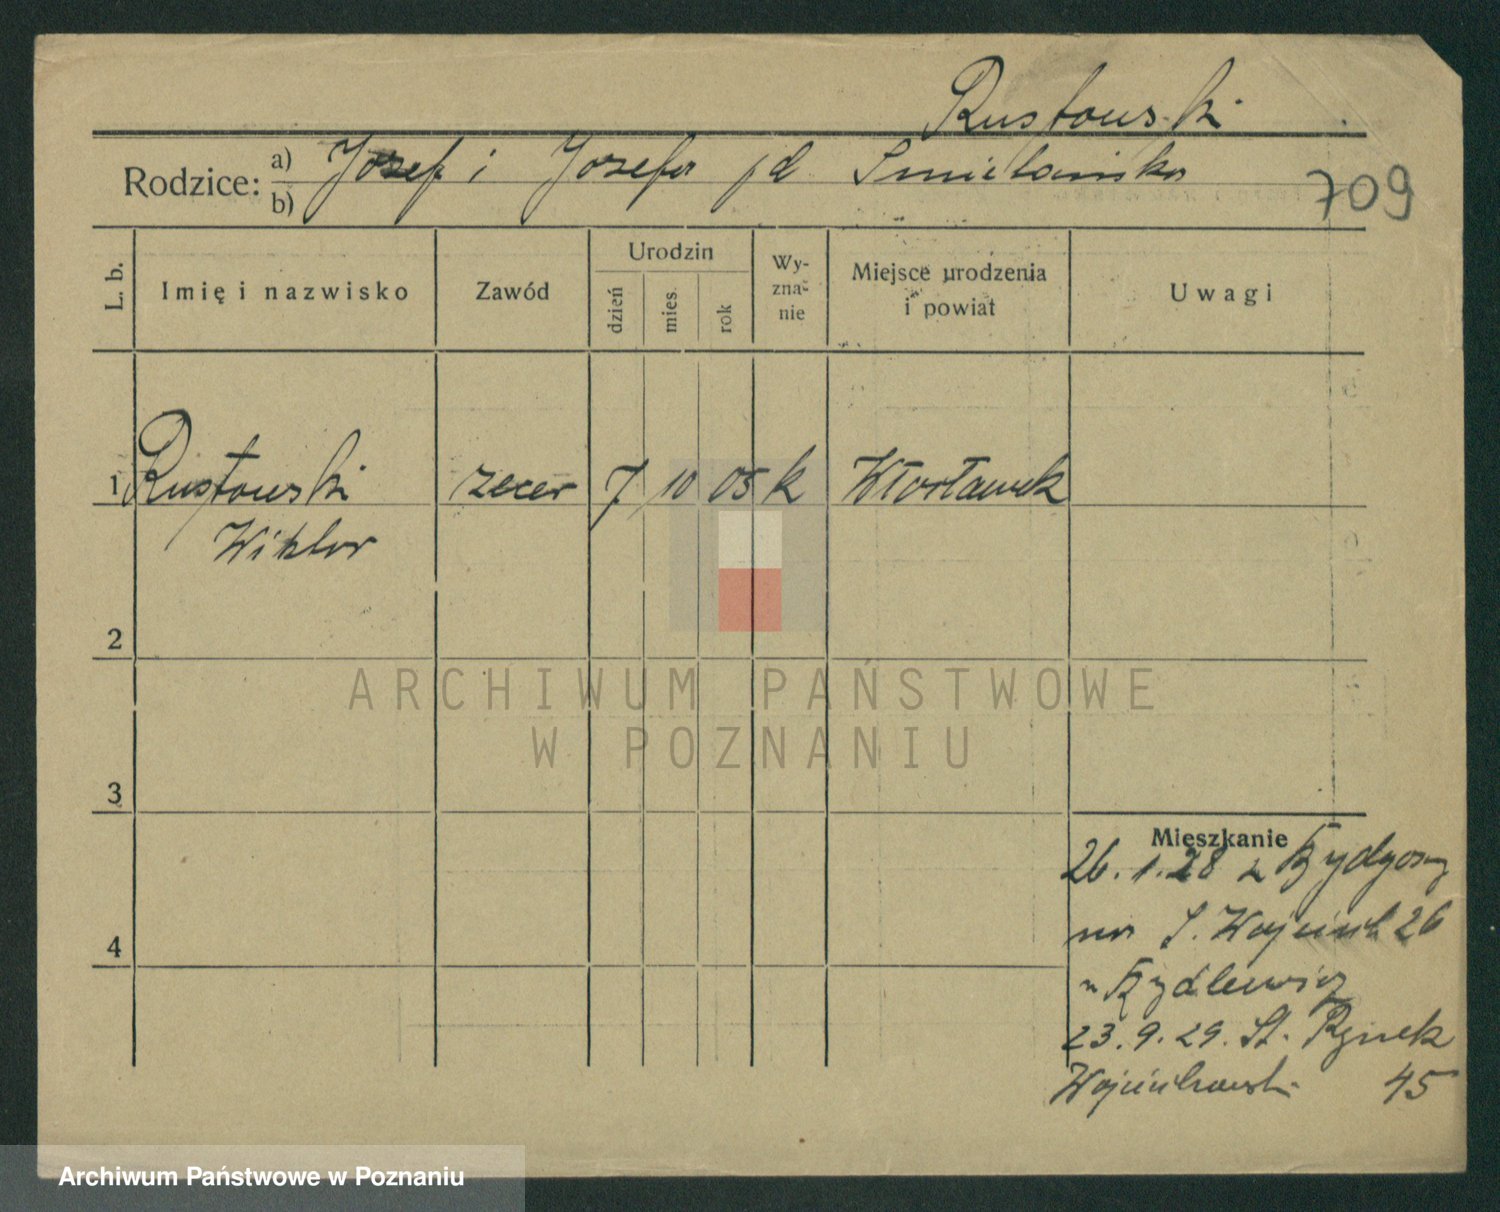 Rustowski
Rodzice: a) Josef i Josefa
b)
709
L. b.
Imię i nazwisko
Zawód
Urodzin
dzień
mies.
rok
Wy-
zna-
nie
Miejsce urodzenia
i powiat
Uwagi
1 Rustowski zecer 7 10 05 k Włocławek
Wiktor
2
3
4
Mieszkanie
26.1.28 z Bydgoszcz
S. Wojciech 26
23.9.29. St. Rynek
45
ARCHIWUM PAŃSTWOWE
W POZNANIU
Archiwum Państwowe w Poznaniu